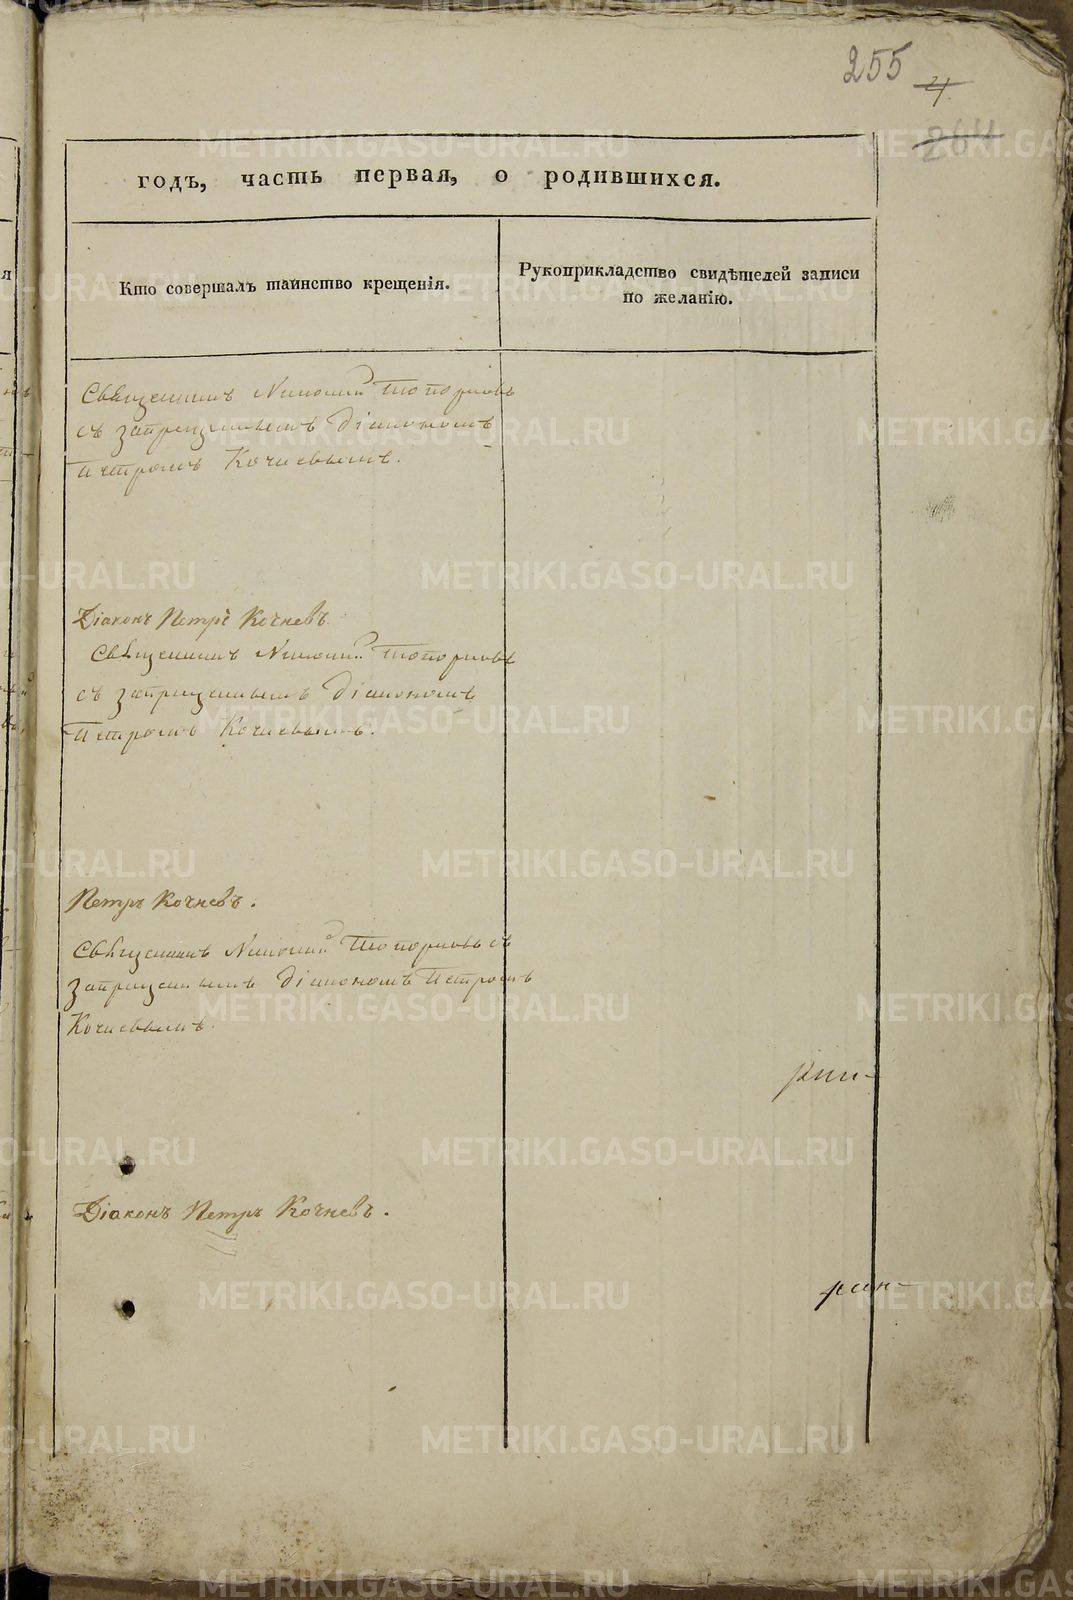 255
4
264
годъ, часть первая, о родившихся.
Кто совершалъ таинство крещенія.
Рукоприкладство свидѣтелей записи
по желанію.
Священникъ Николай Топорковъ
съ запрещеннымъ діакономъ
Петромъ Кочневымъ.
Діаконъ Петръ Кочневъ.
Священникъ Николай Топорковъ
съ запрещеннымъ діакономъ
Петромъ Кочневымъ.
Петръ Кочневъ.
Священникъ Николай Топорковъ съ
запрещеннымъ діакономъ Петромъ
Кочневымъ.
Діаконъ Петръ Кочневъ.
METRIKI.GASO-URAL.RU